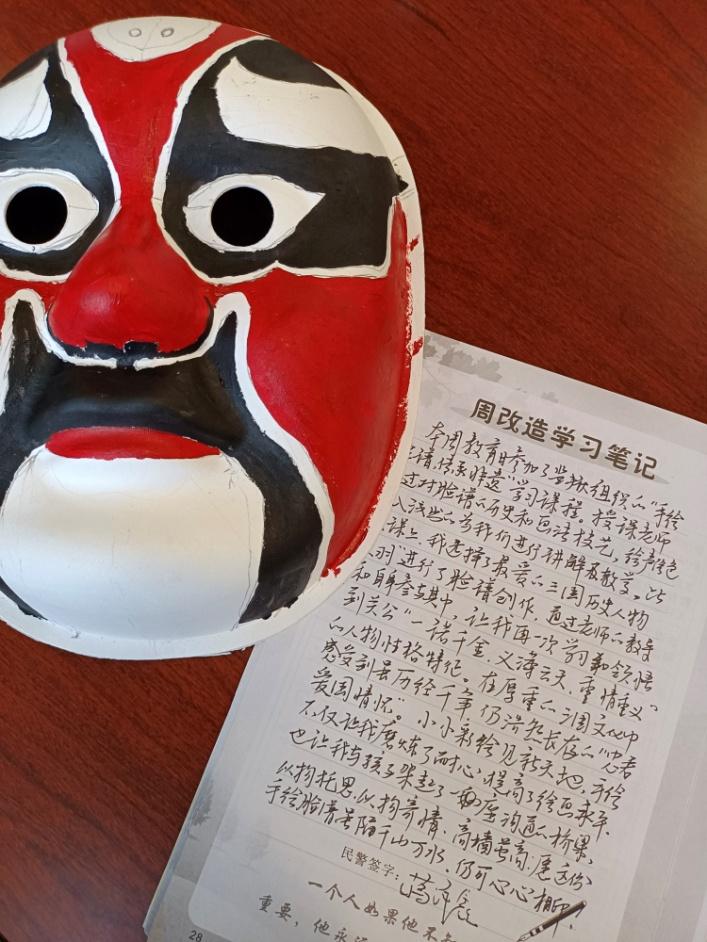 周改造学习笔记
本周教育参加了监狱组织的“手绘
脸谱,传承非遗”学习课程。授课老师
过对脸谱的历史和画法技艺,绘声绘色
入浅出的为我们进行讲解及教学,此
课上,我选择了最爱的三国历史人物
羽”进行了脸谱创作,通过老师的教导
和自身参与其中,让我再一次学习和领悟
到关公“一诺千金,义薄云天,重情重义”
的人物性格特征。在厚重的三国文化中
感受到虽历经千年,仍浩然长存的“忠君
爱国情怀”。小小彩绘见新天地,手绘
不仅把我磨炼了耐心,提高了绘画水平
也让我与孩子架起了一座沟通的桥梁,
以物托思,以物寄情,高墙虽高,
手绘脸谱虽隔千山万水,仍可心心相印!
民警签字:
一个人如果他不
重要,他永远
28